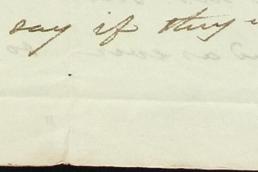 say if they